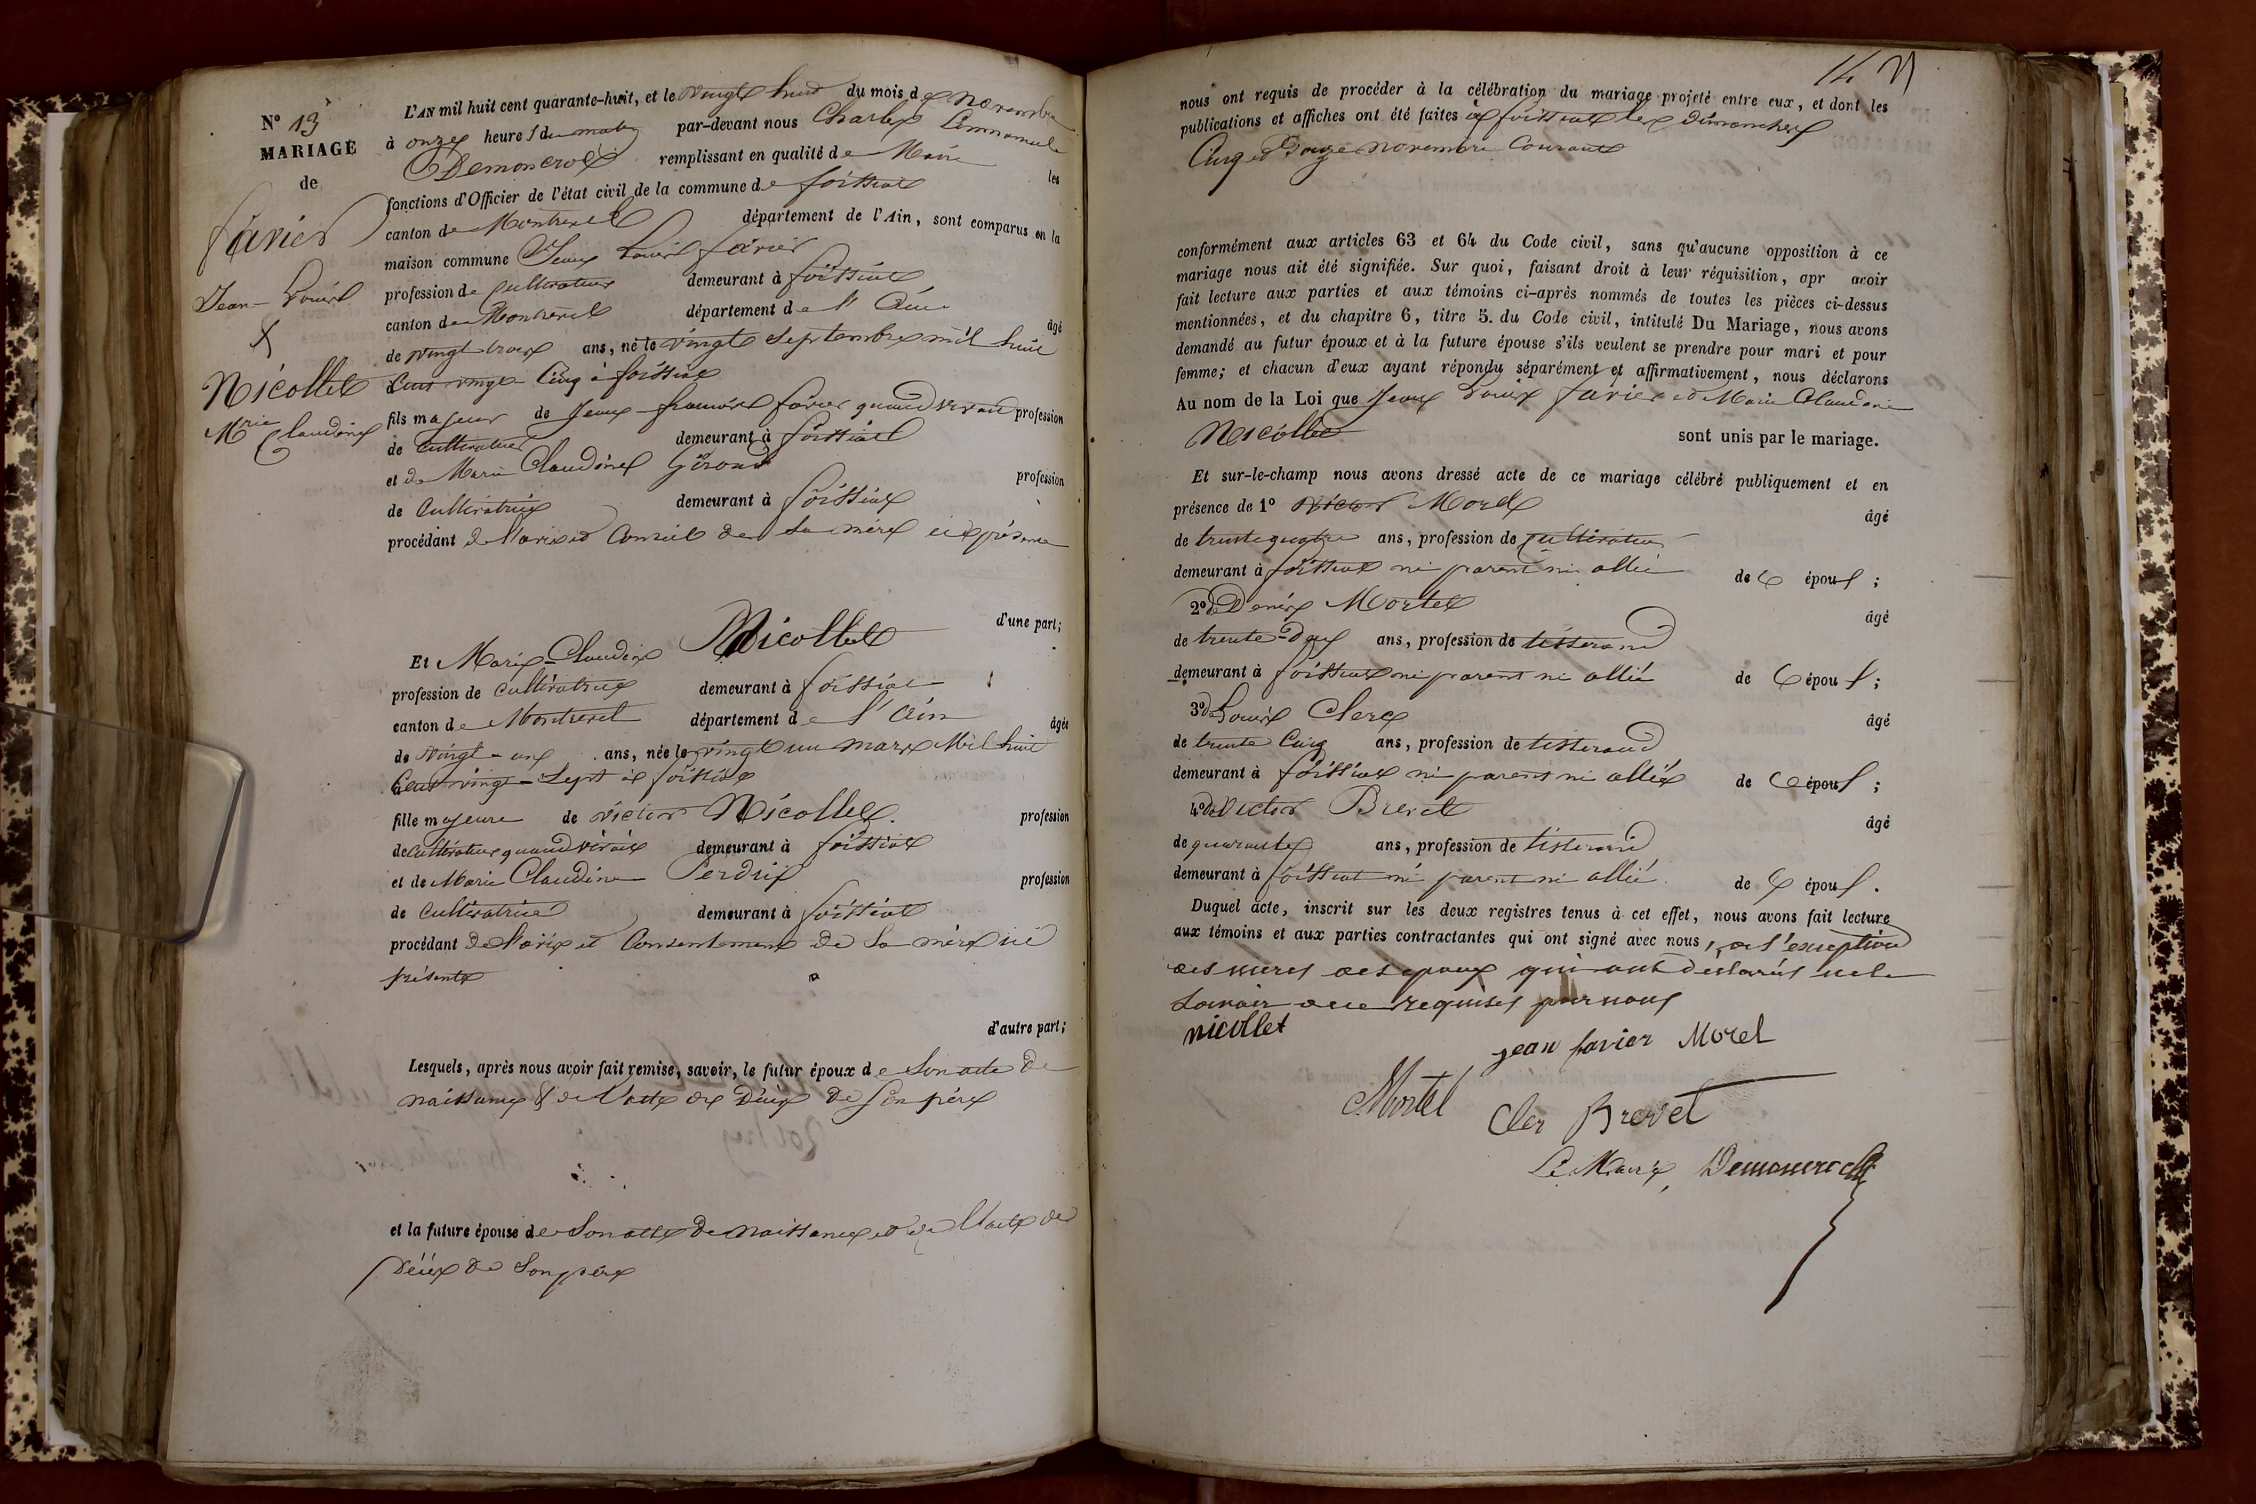 N° 13
MARIAGE
de
favier
Jean - Louis
&
Nicollet
Mrie
Claudine
L'AN mil huit cent quarante-huit, et le vingt huit du mois de Novembre
à onze heures du matin par-devant nous Charles Emmanuel
Demoncroix remplissant en qualité de Maire les
fonctions d'Officier de l'état civil de la commune de foissiat
canton de Montrevel département de l'Ain, sont comparus en la
maison commune Jean Louis favier
profession de Cultivateur demeurant à foissiat
canton de Montrevel département de l'Ain âgé
de vingt trois ans, né le vingt Septembre mil huit
Cent vingt Cinq à foissiat
fils majeur de Jean françois favier quand vivait profession
de Cultivateur demeurant à foissiat
et de Marie Claudine Giroud profession
de Cultivatrice demeurant à foissiat
procédant de l'avis et Conseil de Sa mère ici présente
d'une part;
Et Marie-Claudine Nicollet
profession de Cultivatrice demeurant à foissiat
canton de Montrevel département de l'Ain âgée
de vingt-un ans, née le vingt un mars Mil huit
Cent vingt-Sept à foissiat
fille majeure de victor Nicollet profession
de Cultivateur quand vivait demeurant à foissiat
et de Marie Claudine Perdrix profession
de Cultivatrice demeurant à foissiat
procédant de l'avis et Consentement de Sa mère ici
présente
d'autre part;
Lesquels, après nous avoir fait remise, savoir, le futur époux de Son acte de
naissance & de l'acte de Décès de Son père
et la future épouse de Son acte de naissance et de l'acte de
Décès de Son père
14
nous ont requis de procéder à la célébration du mariage projeté entre eux, et dont les
publications et affiches ont été faites à foissiat les dimanches
Cinq et Douze novembre Courant
conformément aux articles 63 et 64 du Code civil, sans qu'aucune opposition à ce
mariage nous ait été signifiée. Sur quoi, faisant droit à leur réquisition, apr avoir
fait lecture aux parties et aux témoins ci-après nommés de toutes les pièces ci-dessus
mentionnées, et du chapitre 6, titre 5. du Code civil, intitulé Du Mariage, nous avons
demandé au futur époux et à la future épouse s'ils veulent se prendre pour mari et pour
femme; et chacun d'eux ayant répondu séparément et affirmativement, nous déclarons
Au nom de la Loi que Jean Louis favier et Marie Claudine
Nicollet sont unis par le mariage.
Et sur-le-champ nous avons dressé acte de ce mariage célébré publiquement et en
présence de 1° victor Morel âgé
de trente quatre ans, profession de cultivateur
demeurant à foissiat ni parent ni allié des époux;
2° de Denis Mortel âgé
de trente-deux ans, profession de tisserand
demeurant à foissiat ni parent ni allié des époux;
3° de Louis Clerc âgé
de trente Cinq ans, profession de tisserand
demeurant à foissiat ni parent ni allié des époux;
4° de victor Brevet âgé
de quarante ans, profession de tisserand
demeurant à foissiat ni parent ni allié des époux.
Duquel acte, inscrit sur les deux registres tenus à cet effet, nous avons fait lecture
aux témoins et aux parties contractantes qui ont signé avec nous, à l'exception
des meres des epoux qui ont déclarés ne le
savoir de ce requises par nous
nicollet
jean favier Morel
Mortel Cler Brevet
Le Maire, Demoncroix